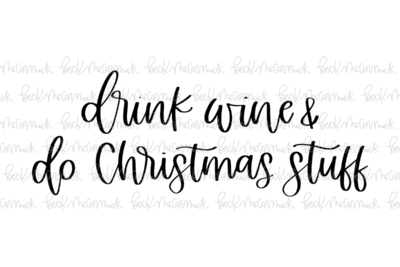 drink wine &
do Christmas stuff